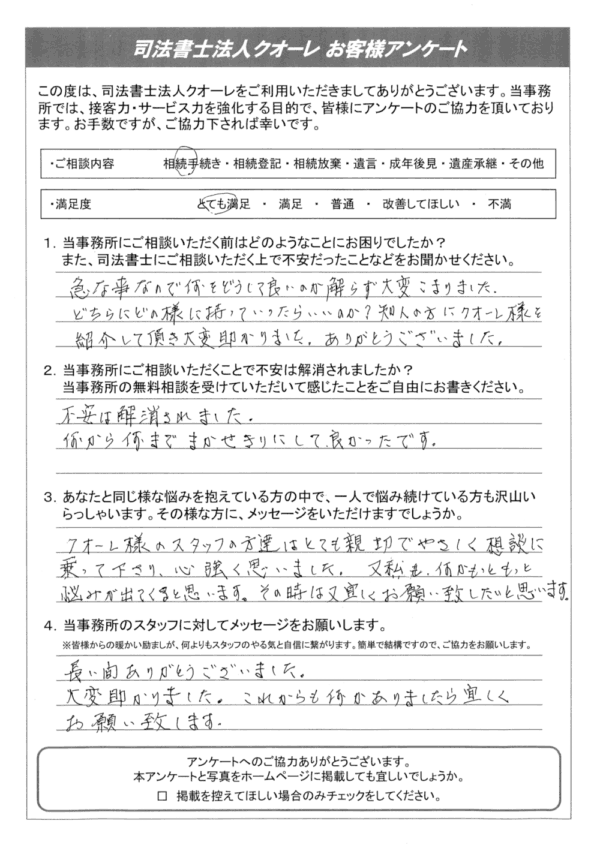 司法書士法人クオーレ お客様アンケート
この度は、司法書士法人クオーレをご利用いただきましてありがとうございます。当事務
所では、接客力・サービス力を強化する目的で、皆様にアンケートのご協力を頂いており
ます。お手数ですが、ご協力下されば幸いです。
・ご相談内容 相続手続き・相続登記・相続放棄・遺言・成年後見・遺産承継・その他
・満足度 とても満足 ・ 満足 ・ 普通 ・ 改善してほしい ・ 不満
1. 当事務所にご相談いただく前はどのようなことにお困りでしたか？
また、司法書士にご相談いただく上で不安だったことなどをお聞かせください。
急な事なので何をどうして良いのか解らず大変こまりました.
どちらにどの様に持っていったらいいのか？知人の方にクオーレ様を
紹介して頂き大変助かりました。ありがとうございました.
2. 当事務所にご相談いただくことで不安は解消されましたか？
当事務所の無料相談を受けていただいて感じたことをご自由にお書きください。
不安は解消されました.
何から何までまかせきりにして良かったです.
3. あなたと同じ様な悩みを抱えている方の中で、一人で悩み続けている方も沢山い
らっしゃいます。その様な方に、メッセージをいただけますでしょうか。
クオーレ様のスタッフの方達はとても親切でやさしく想談に
乗って下さり、心強く思いました. 又私も、何かもっともっと
悩みが出てくると思います。その時は又宜しくお願い致したいと思います.
4. 当事務所のスタッフに対してメッセージをお願いします。
※皆様からの暖かい励ましが、何よりもスタッフのやる気と自信に繋がります。簡単で結構ですので、ご協力をお願いします。
長い間ありがとうございました.
大変助かりました。これからも何かありましたら宜しく
お願い致します.
アンケートへのご協力ありがとうございます。
本アンケートと写真をホームページに掲載しても宜しいでしょうか。
□ 掲載を控えてほしい場合のみチェックをしてください。